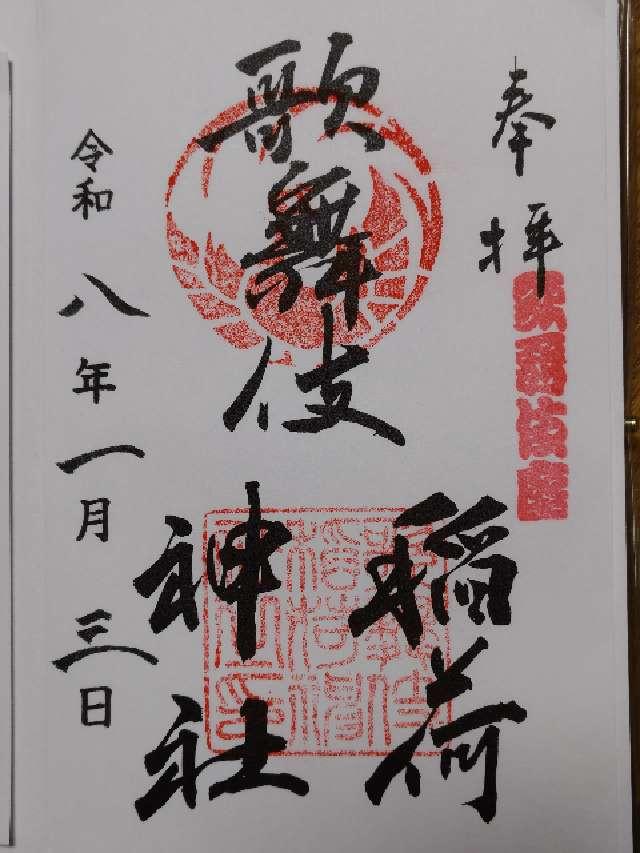 奉拝
歌舞伎座
歌舞伎
稲荷
神社
令和八年一月三日